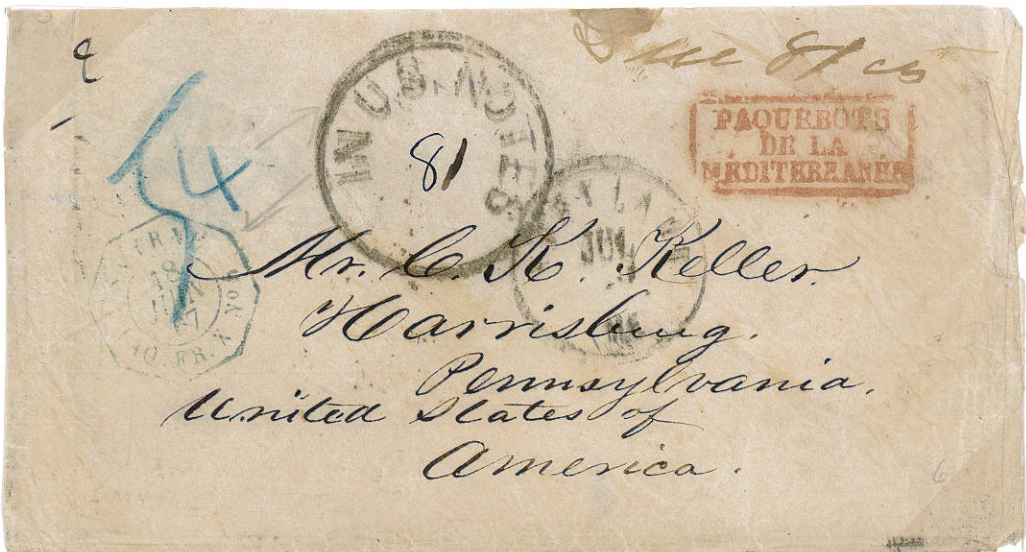 Due 81 cts
PAQUEBOTS
DE LA
MÉDITERRANÉE
IN U.S. NOTES
81
54
JUL
Mr. C. K. Keller.
Harrisburg.
Pennsylvania.
United States of
America.